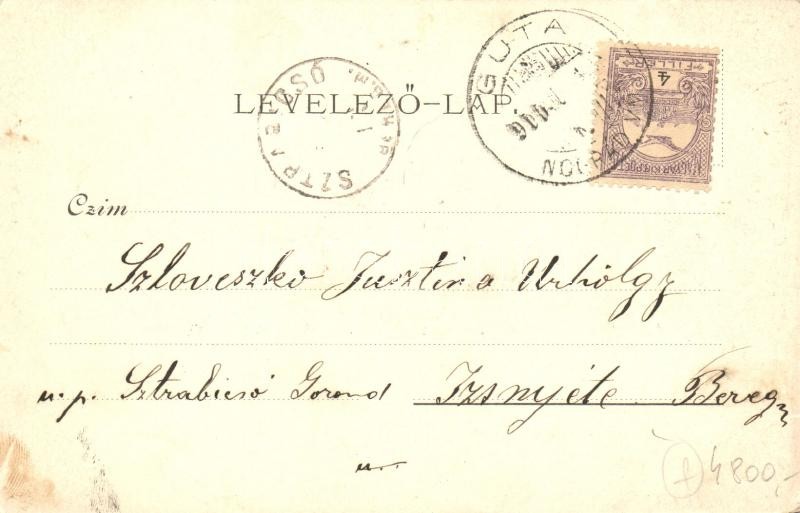 GUTA
NÓGRÁD
4
FILLÉR
MAGYAR KIR. POSTA
LEVELEZŐ–LAP.
Czim
Szloveszko Jusztina Urhölgy
u. p. Sztrabicsó Gorond Izsnyéte. Bereg
4800,-